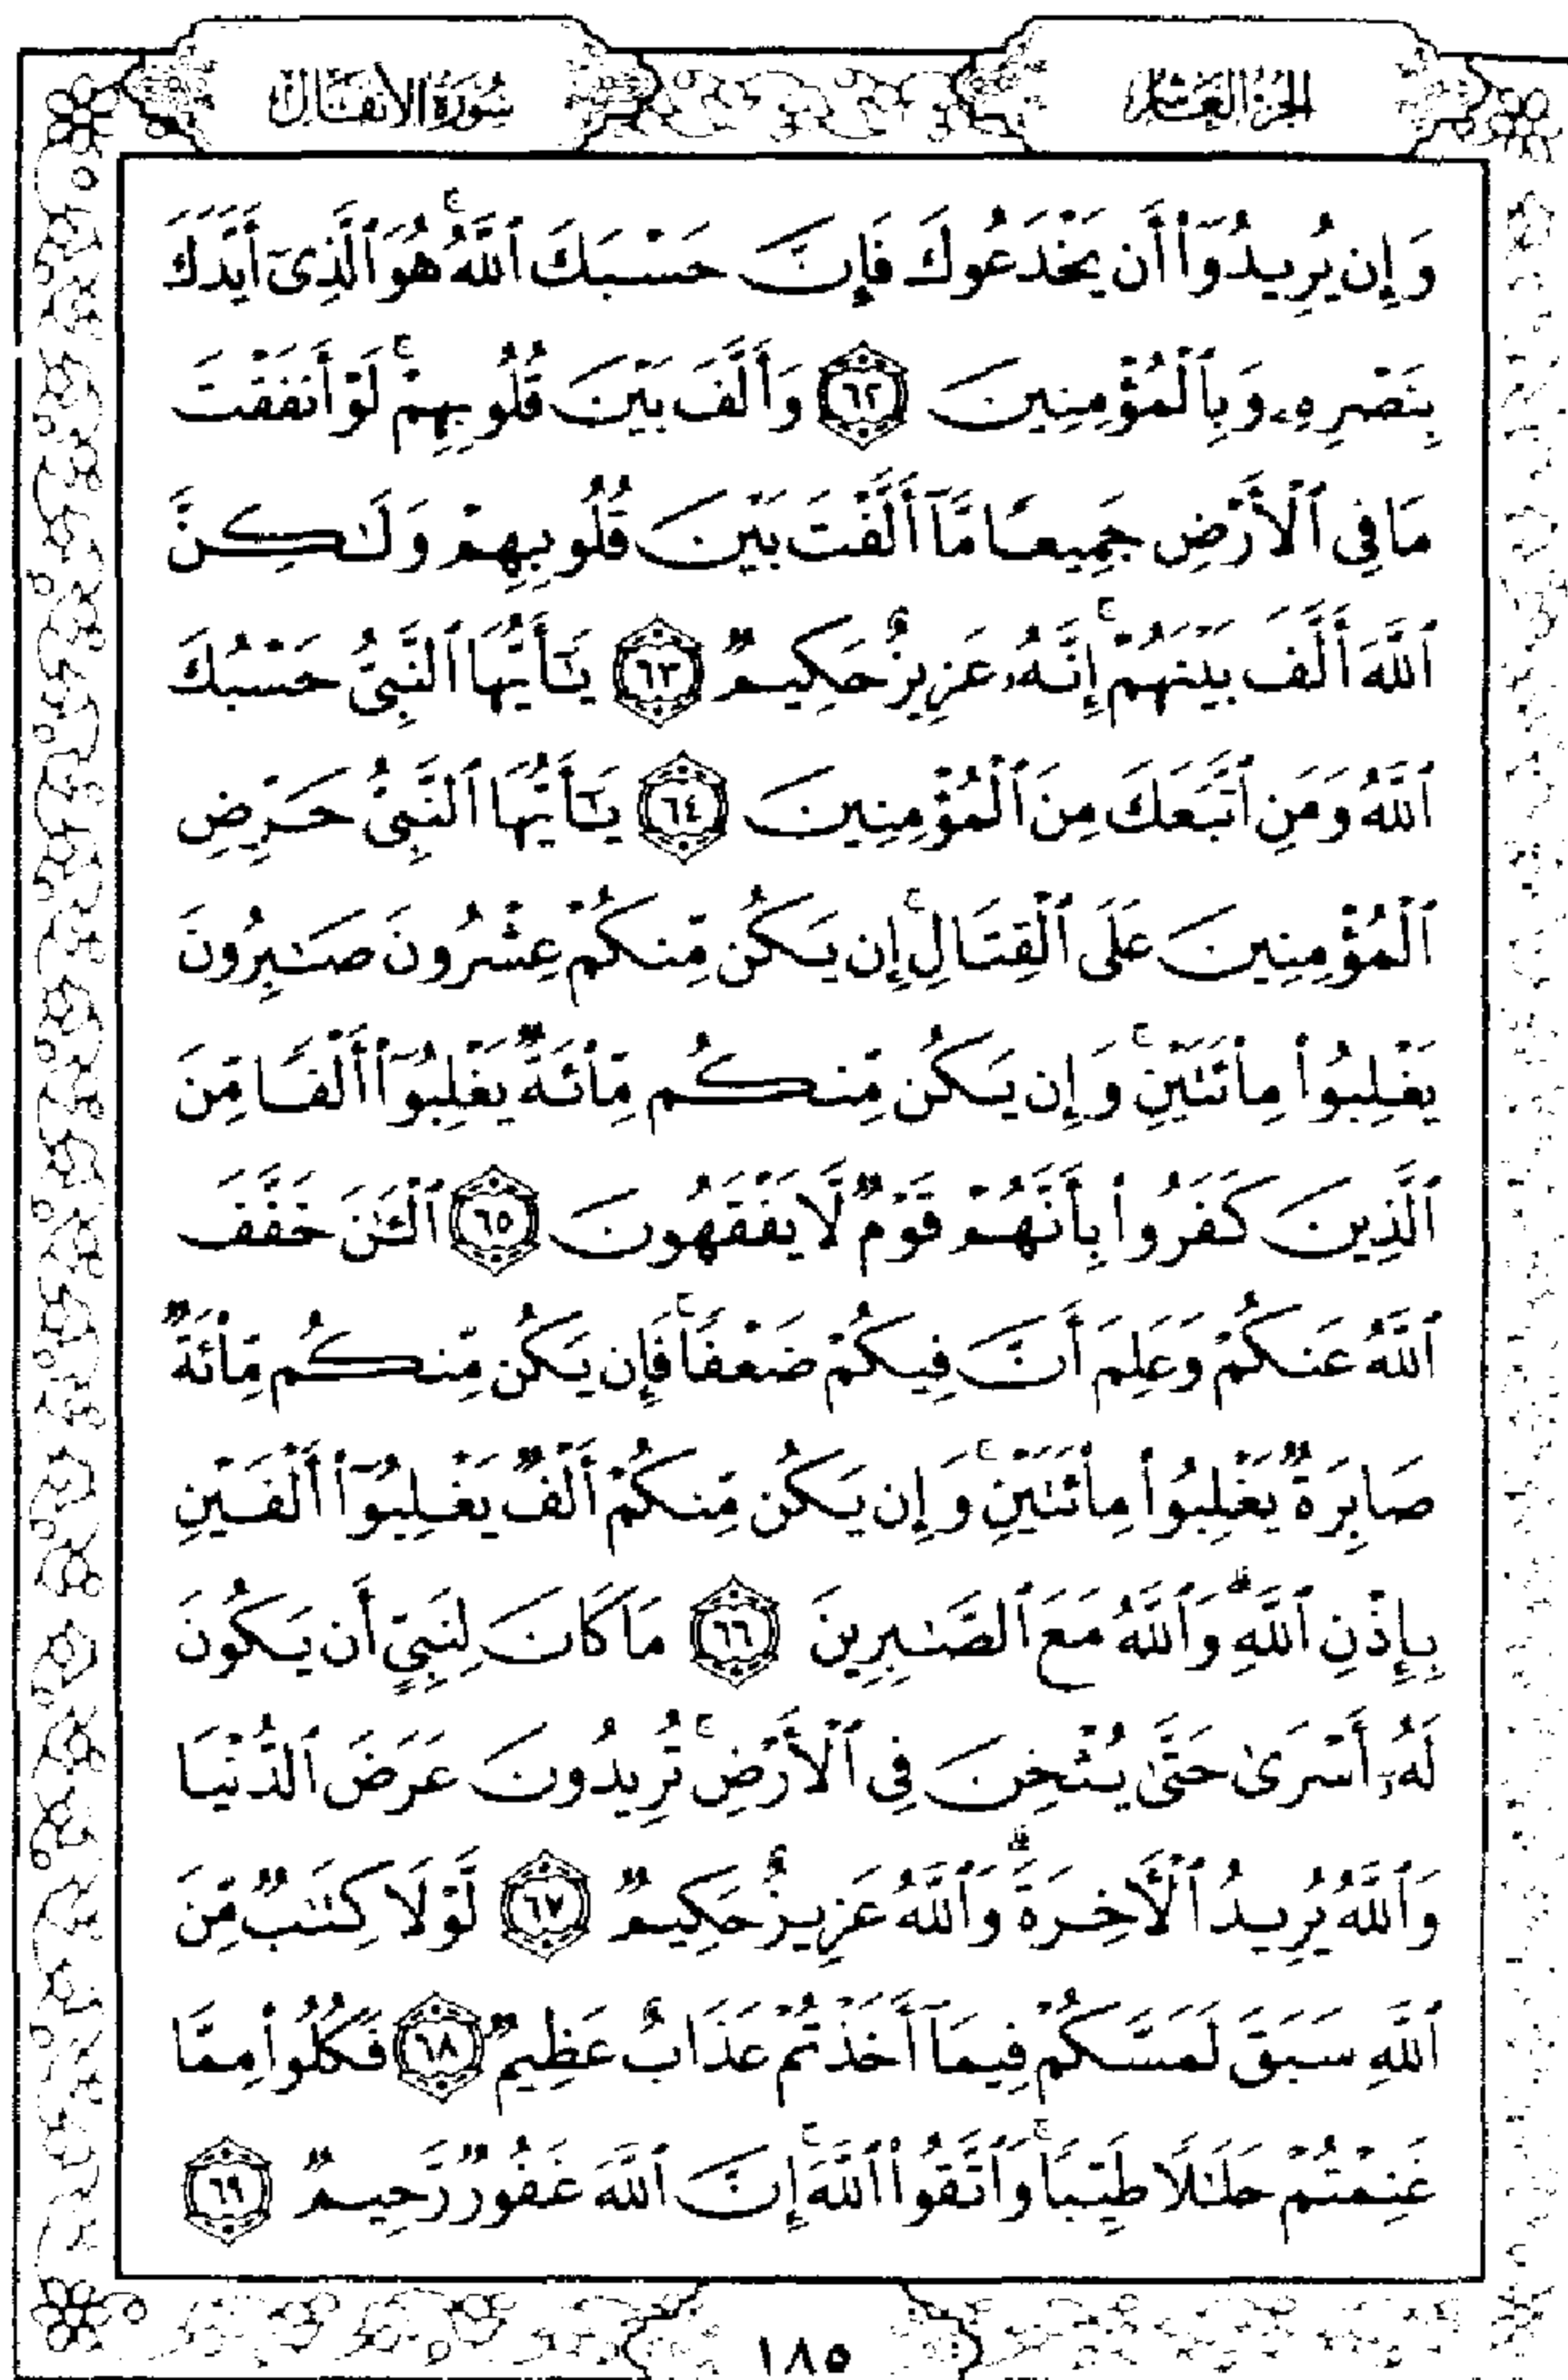 الجزء العاشر
سورة الأنفال
وَإِن يُرِيدُوٓا۟ أَن يَخْدَعُوكَ فَإِنَّ حَسْبَكَ ٱللَّهُ ۚ هُوَ ٱلَّذِىٓ أَيَّدَكَ
بِنَصْرِهِۦ وَبِٱلْمُؤْمِنِينَ ٦٢ وَأَلَّفَ بَيْنَ قُلُوبِهِمْ ۚ لَوْ أَنفَقْتَ
مَا فِى ٱلْأَرْضِ جَمِيعًا مَّآ أَلَّفْتَ بَيْنَ قُلُوبِهِمْ وَلَٰكِنَّ
ٱللَّهَ أَلَّفَ بَيْنَهُمْ ۚ إِنَّهُۥ عَزِيزٌ حَكِيمٌ ٦٣ يَٰٓأَيُّهَا ٱلنَّبِىُّ حَسْبُكَ
ٱللَّهُ وَمَنِ ٱتَّبَعَكَ مِنَ ٱلْمُؤْمِنِينَ ٦٤ يَٰٓأَيُّهَا ٱلنَّبِىُّ حَرِّضِ
ٱلْمُؤْمِنِينَ عَلَى ٱلْقِتَالِ ۚ إِن يَكُن مِّنكُمْ عِشْرُونَ صَٰبِرُونَ
يَغْلِبُوا۟ مِا۟ئَتَيْنِ ۚ وَإِن يَكُن مِّنكُم مِّا۟ئَةٌ يَغْلِبُوٓا۟ أَلْفًا مِّنَ
ٱلَّذِينَ كَفَرُوا۟ بِأَنَّهُمْ قَوْمٌ لَّا يَفْقَهُونَ ٦٥ ٱلْـَٰٔنَ خَفَّفَ
ٱللَّهُ عَنكُمْ وَعَلِمَ أَنَّ فِيكُمْ ضَعْفًا ۚ فَإِن يَكُن مِّنكُم مِّا۟ئَةٌ
صَابِرَةٌ يَغْلِبُوا۟ مِا۟ئَتَيْنِ ۚ وَإِن يَكُن مِّنكُمْ أَلْفٌ يَغْلِبُوٓا۟ أَلْفَيْنِ
بِإِذْنِ ٱللَّهِ ۗ وَٱللَّهُ مَعَ ٱلصَّٰبِرِينَ ٦٦ مَا كَانَ لِنَبِىٍّ أَن يَكُونَ
لَهُۥٓ أَسْرَىٰ حَتَّىٰ يُثْخِنَ فِى ٱلْأَرْضِ ۚ تُرِيدُونَ عَرَضَ ٱلدُّنْيَا
وَٱللَّهُ يُرِيدُ ٱلْـَٔاخِرَةَ ۗ وَٱللَّهُ عَزِيزٌ حَكِيمٌ ٦٧ لَّوْلَا كِتَٰبٌ مِّنَ
ٱللَّهِ سَبَقَ لَمَسَّكُمْ فِيمَآ أَخَذْتُمْ عَذَابٌ عَظِيمٌ ٦٨ فَكُلُوا۟ مِمَّا
غَنِمْتُمْ حَلَٰلًا طَيِّبًا ۚ وَٱتَّقُوا۟ ٱللَّهَ ۚ إِنَّ ٱللَّهَ غَفُورٌ رَّحِيمٌ ٦٩
١٨٥